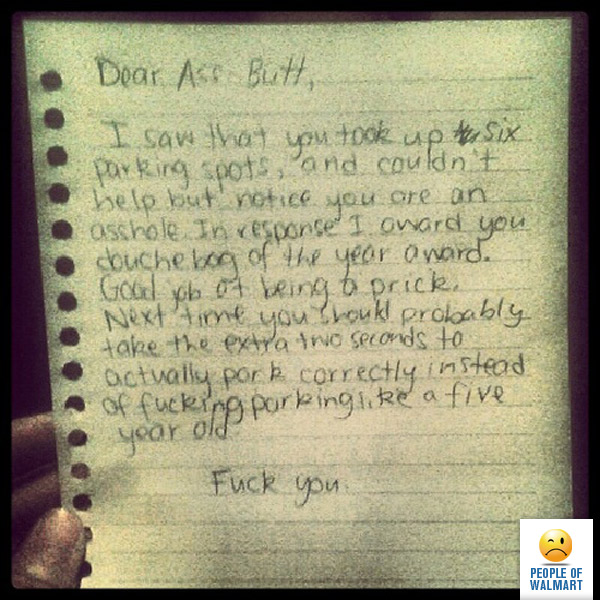 Dear Ass Butt,
I saw that you took up six
parking spots, and couldn't
help but notice you are an
asshole. In response I award you
douche bag of the year award.
Good job at being a prick.
Next time you should probably
take the extra two seconds to
actually park correctly instead
of fucking parking like a five
year old
Fuck you.
PEOPLE OF
WALMART